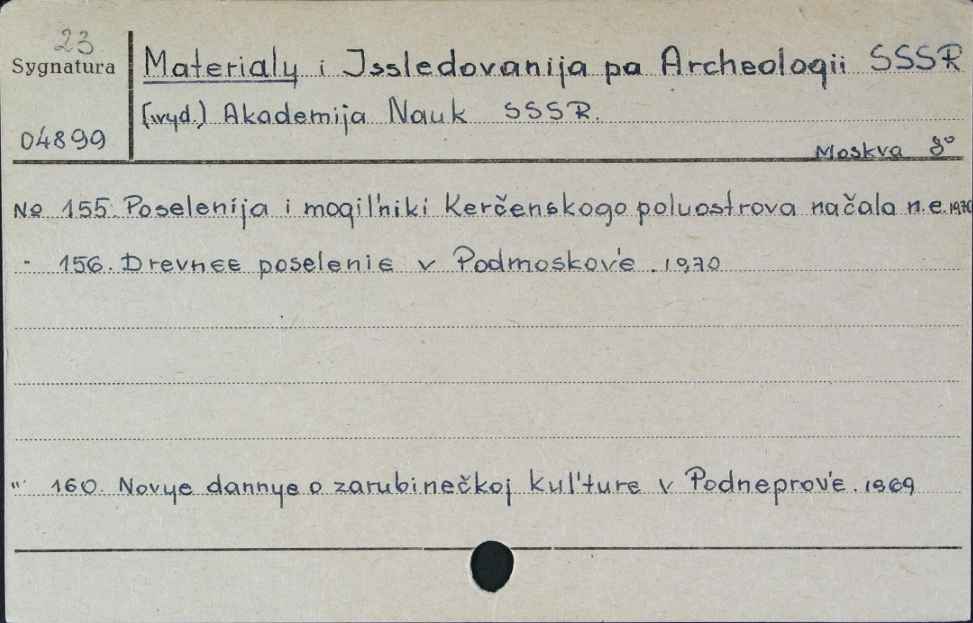 23
Sygnatura
04899
Materialy i Issledovanija po Archeologii SSSR
[wyd.] Akademija Nauk SSSR.
Moskva 8°
No 155. Poselenija i mogil'niki Kerčenskogo poluostrova načala n.e. 1970
- 156. Drevnee poselenie v Podmoskov'e. 1970
" 160. Novye dannye o zarubinečkoj kul'ture v Podneprov'e. 1969